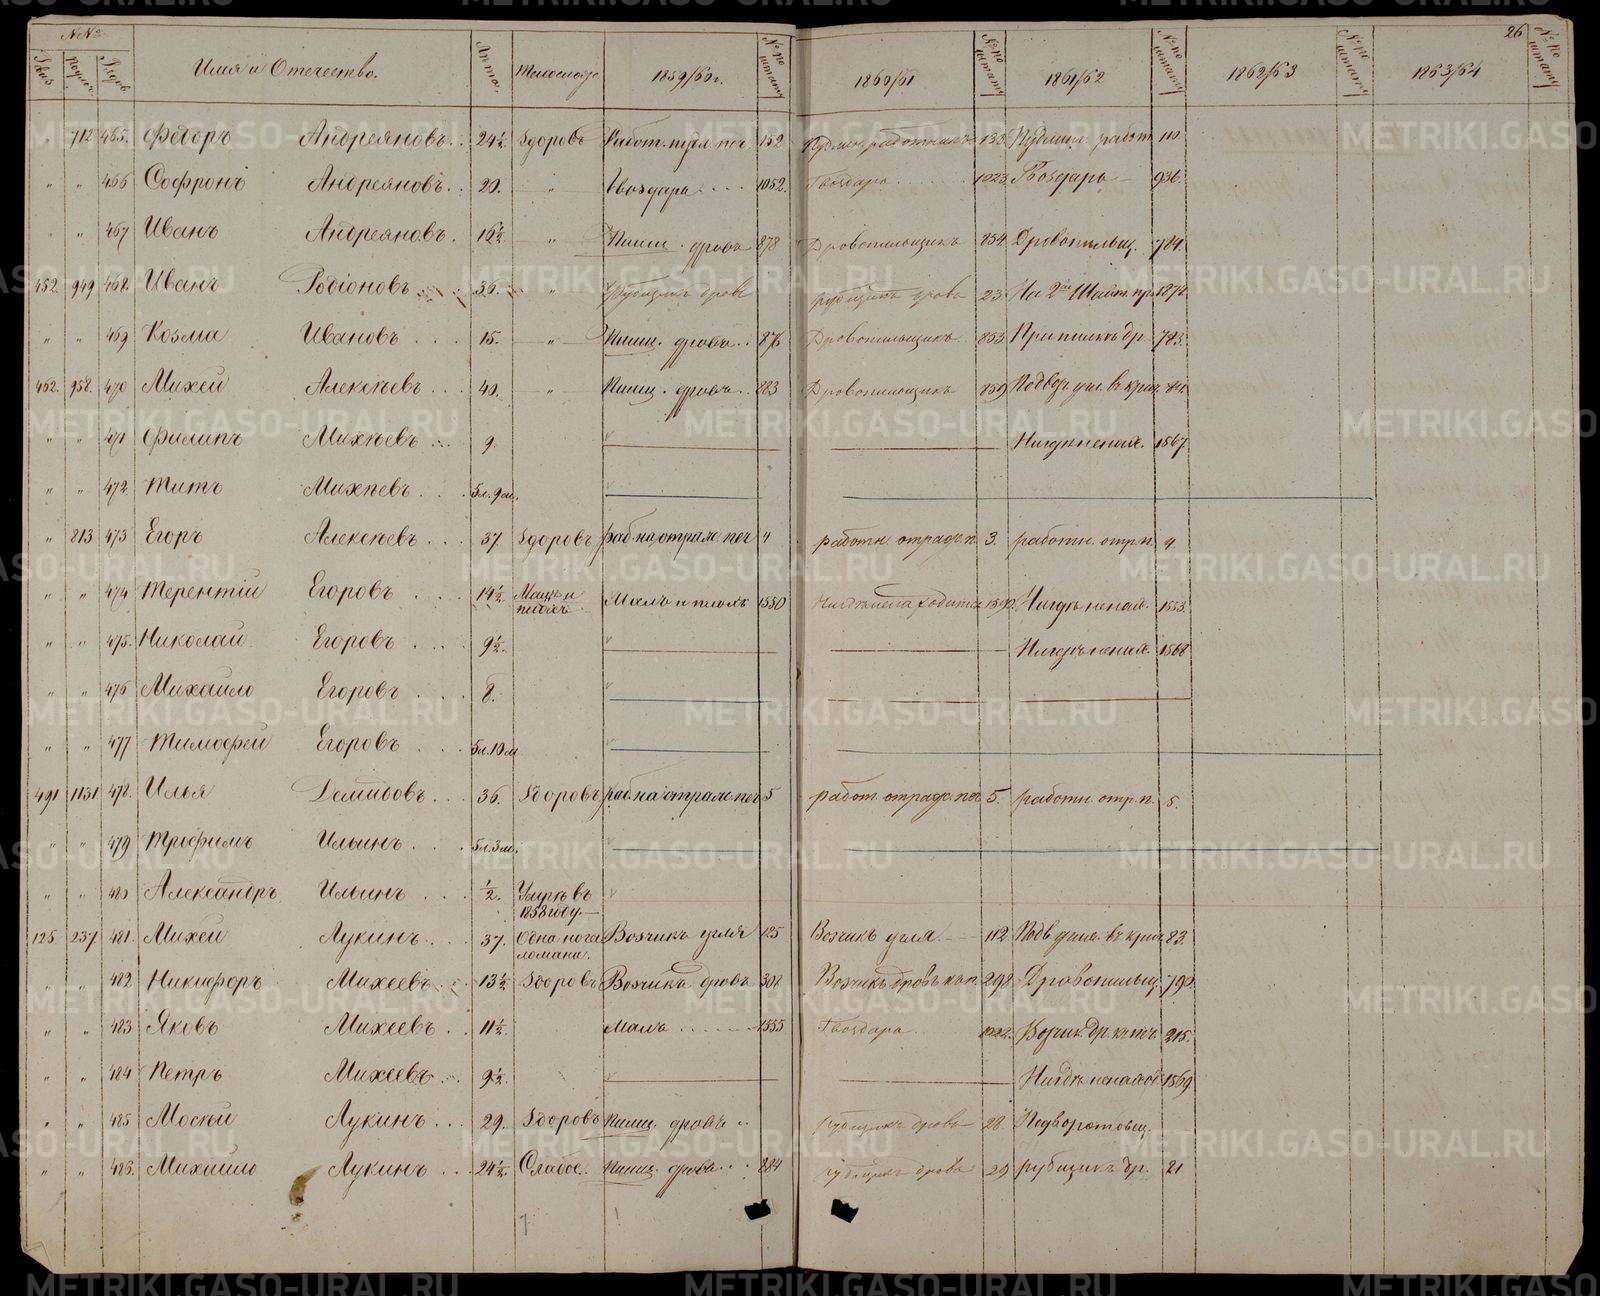 26
NNо
Имя и Отечество.
Лета.
Телослож.
1859/60 г.
№ по штату
1860/61
№ по штату
1861/62
№ по штату
1862/63
№ по штату
1863/64
№ по штату
712 465. Ѳедоръ Андреяновъ. 24½ Здоровъ Работ. пудл. печ 152 133. 110.
" " 466 Софронъ Андреяновъ. 20. " Гвоздарь 1052. Гвоздарь 1023. Гвоздарь 936.
" " 467 Иванъ Андреяновъ. 16½ " Пилщ. дровъ 878 Дровопильщикъ 854 Дровопильщ. 784.
452. 949 468. Иванъ Родіоновъ 36. " Рубщикъ дровъ рубщикъ дровъ 23. На 2й Шайт. пр. 1874.
" " 469 Козма Ивановъ 15. " Пилщ. дровъ 876 Дровопильщикъ 853 При пилкѣ др. 783.
462. 958. 470 Михей Алексѣевъ 40. " Пилщ. дровъ 883 Дровопильщикъ 859 84.
" " 471 Филипъ Михѣевъ 9. Нигдѣ ненах. 1567
" " 472. Титъ Михѣевъ 5л.9м.
" 813 473 Егоръ Алексѣевъ 37. Здоровъ раб. на отраж. печ 4 работн. отраж. п. 3. работн. отр. п. 4.
" " 474 Терентій Егоровъ 14½ Малъ и плохъ Малъ и плохъ 1550 Нигдѣ ненах. 1553.
" " 475. Николай Егоровъ 9½. Нигдѣ ненах. 1568
" " 476 Михайло Егоровъ 8.
" " 477 Тимофей Егоровъ 5л.10м
491 1131 478. Илья Демидовъ 36. Здоровъ раб. на отраж. печ 5 работ. отраж. печ 5. работн. отр. п. 5.
" " 479 Трофимъ Ильинъ 5л.3м.
" " 480 Александръ Ильинъ ½. Умре въ 1858 году.
125 237. 481. Михей Лукинъ 37. Одна нога ломана. Возчикъ угля 125 Возчикъ угля 112 Подв. угля. въ крич. 83.
" " 482 Никифоръ Михеевъ 13½ Здоровъ Возчикъ дровъ 308 Возчикъ дровъ 298. Дровопильщ. 790.
" " 483 Яковъ Михеевъ 11½ Малъ 1555 Гвоздарь Возчик. др. 215.
" " 484 Петръ Михеевъ 9½. Нигдѣ ненаход. 1569
" " 485 Мосѣй Лукинъ 29. Здоровъ Пилщ. дровъ рубщикъ дровъ 28. Подворотовщ.
" " 486. Михайло Лукинъ 24½ Слабое. Пилщ. дровъ 884 рубщикъ дровъ 29 рубщикъ др. 21
METRIKI.GASO-URAL.RU